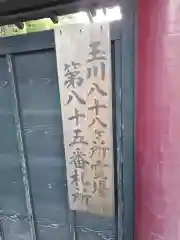 玉川八十八ヶ所霊場
第八十五番札所